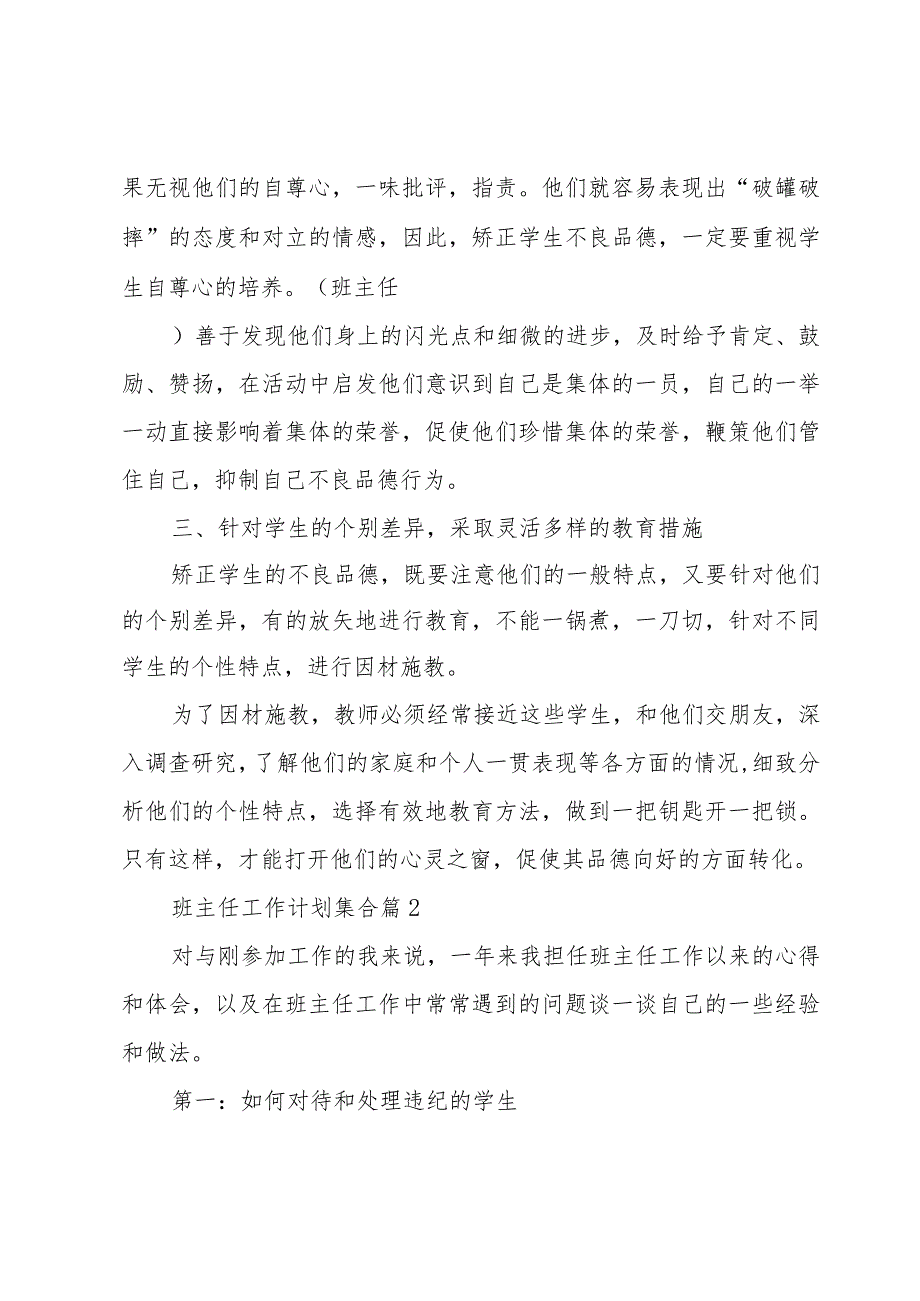 果无视他们的自尊心，一味批评，指责。他们就容易表现出“破罐破
摔”的态度和对立的情感，因此，矫正学生不良品德，一定要重视学
生自尊心的培养。（班主任
）善于发现他们身上的闪光点和细微的进步，及时给予肯定、鼓
励、赞扬，在活动中启发他们意识到自己是集体的一员，自己的一举
一动直接影响着集体的荣誉，促使他们珍惜集体的荣誉，鞭策他们管
住自己，抑制自己不良品德行为。
三、针对学生的个别差异，采取灵活多样的教育措施
矫正学生的不良品德，既要注意他们的一般特点，又要针对他们
的个别差异，有的放矢地进行教育，不能一锅煮，一刀切，针对不同
学生的个性特点，进行因材施教。
为了因材施教，教师必须经常接近这些学生，和他们交朋友，深
入调查研究，了解他们的家庭和个人一贯表现等各方面的情况,细致分
析他们的个性特点，选择有效地教育方法，做到一把钥匙开一把锁。
只有这样，才能打开他们的心灵之窗，促使其品德向好的方面转化。
班主任工作计划集合篇2
对与刚参加工作的我来说，一年来我担任班主任工作以来的心得
和体会，以及在班主任工作中常常遇到的问题谈一谈自己的一些经验
和做法。
第一：如何对待和处理违纪的学生